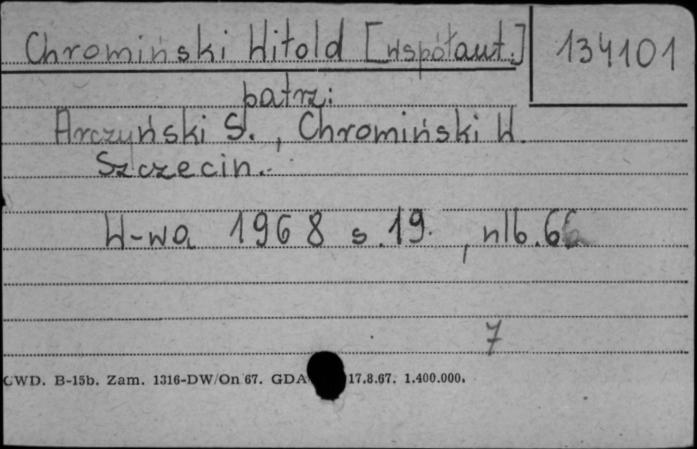 Chromiński Witold [współaut.]
134101
patrz:
Arczyński S., Chromiński W.
Szczecin.
W-wa 1968 s.19., nlb.66
7
CWD. B-15b. Zam. 1316-DW/On 67. GDA 17.8.67. 1.400.000.